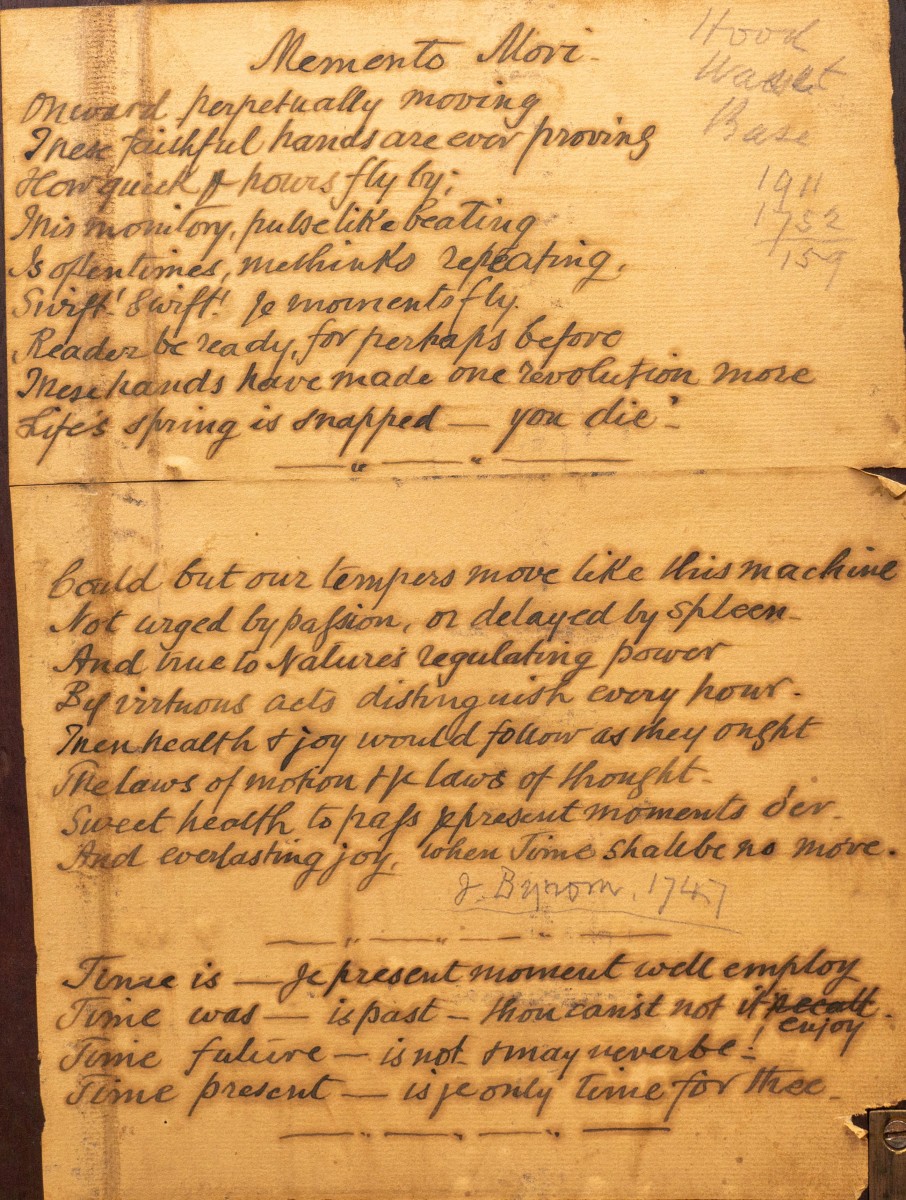 Memento Mori -
Hood
Base
1911
1752
159
Onward perpetually moving
These faithful hands are ever proving
How quick ye hours fly by;
This monitory, pulse like beating
Is oftentimes, methinks repeating,
Swift! Swift! ye moments fly.
Reader be ready, for perhaps before
These hands have made one revolution more
Life's spring is snapped — you die! -
Could but our tempers move like this machine
Not urged by passion, or delayed by spleen -
And true to Nature's regulating power
By virtuous acts distinguish every hour -
Then health & joy would follow as they ought
The laws of motion & ye laws of thought -
Sweet health to pass ye present moments o'er -
And everlasting joy, when Time shall be no more.
J. Byrom, 1747
Time is — ye present moment well employ
Time was — is past - thou can'st not it recall -
enjoy
Time future — is not & may never be - !
Time present — is ye only time for thee -